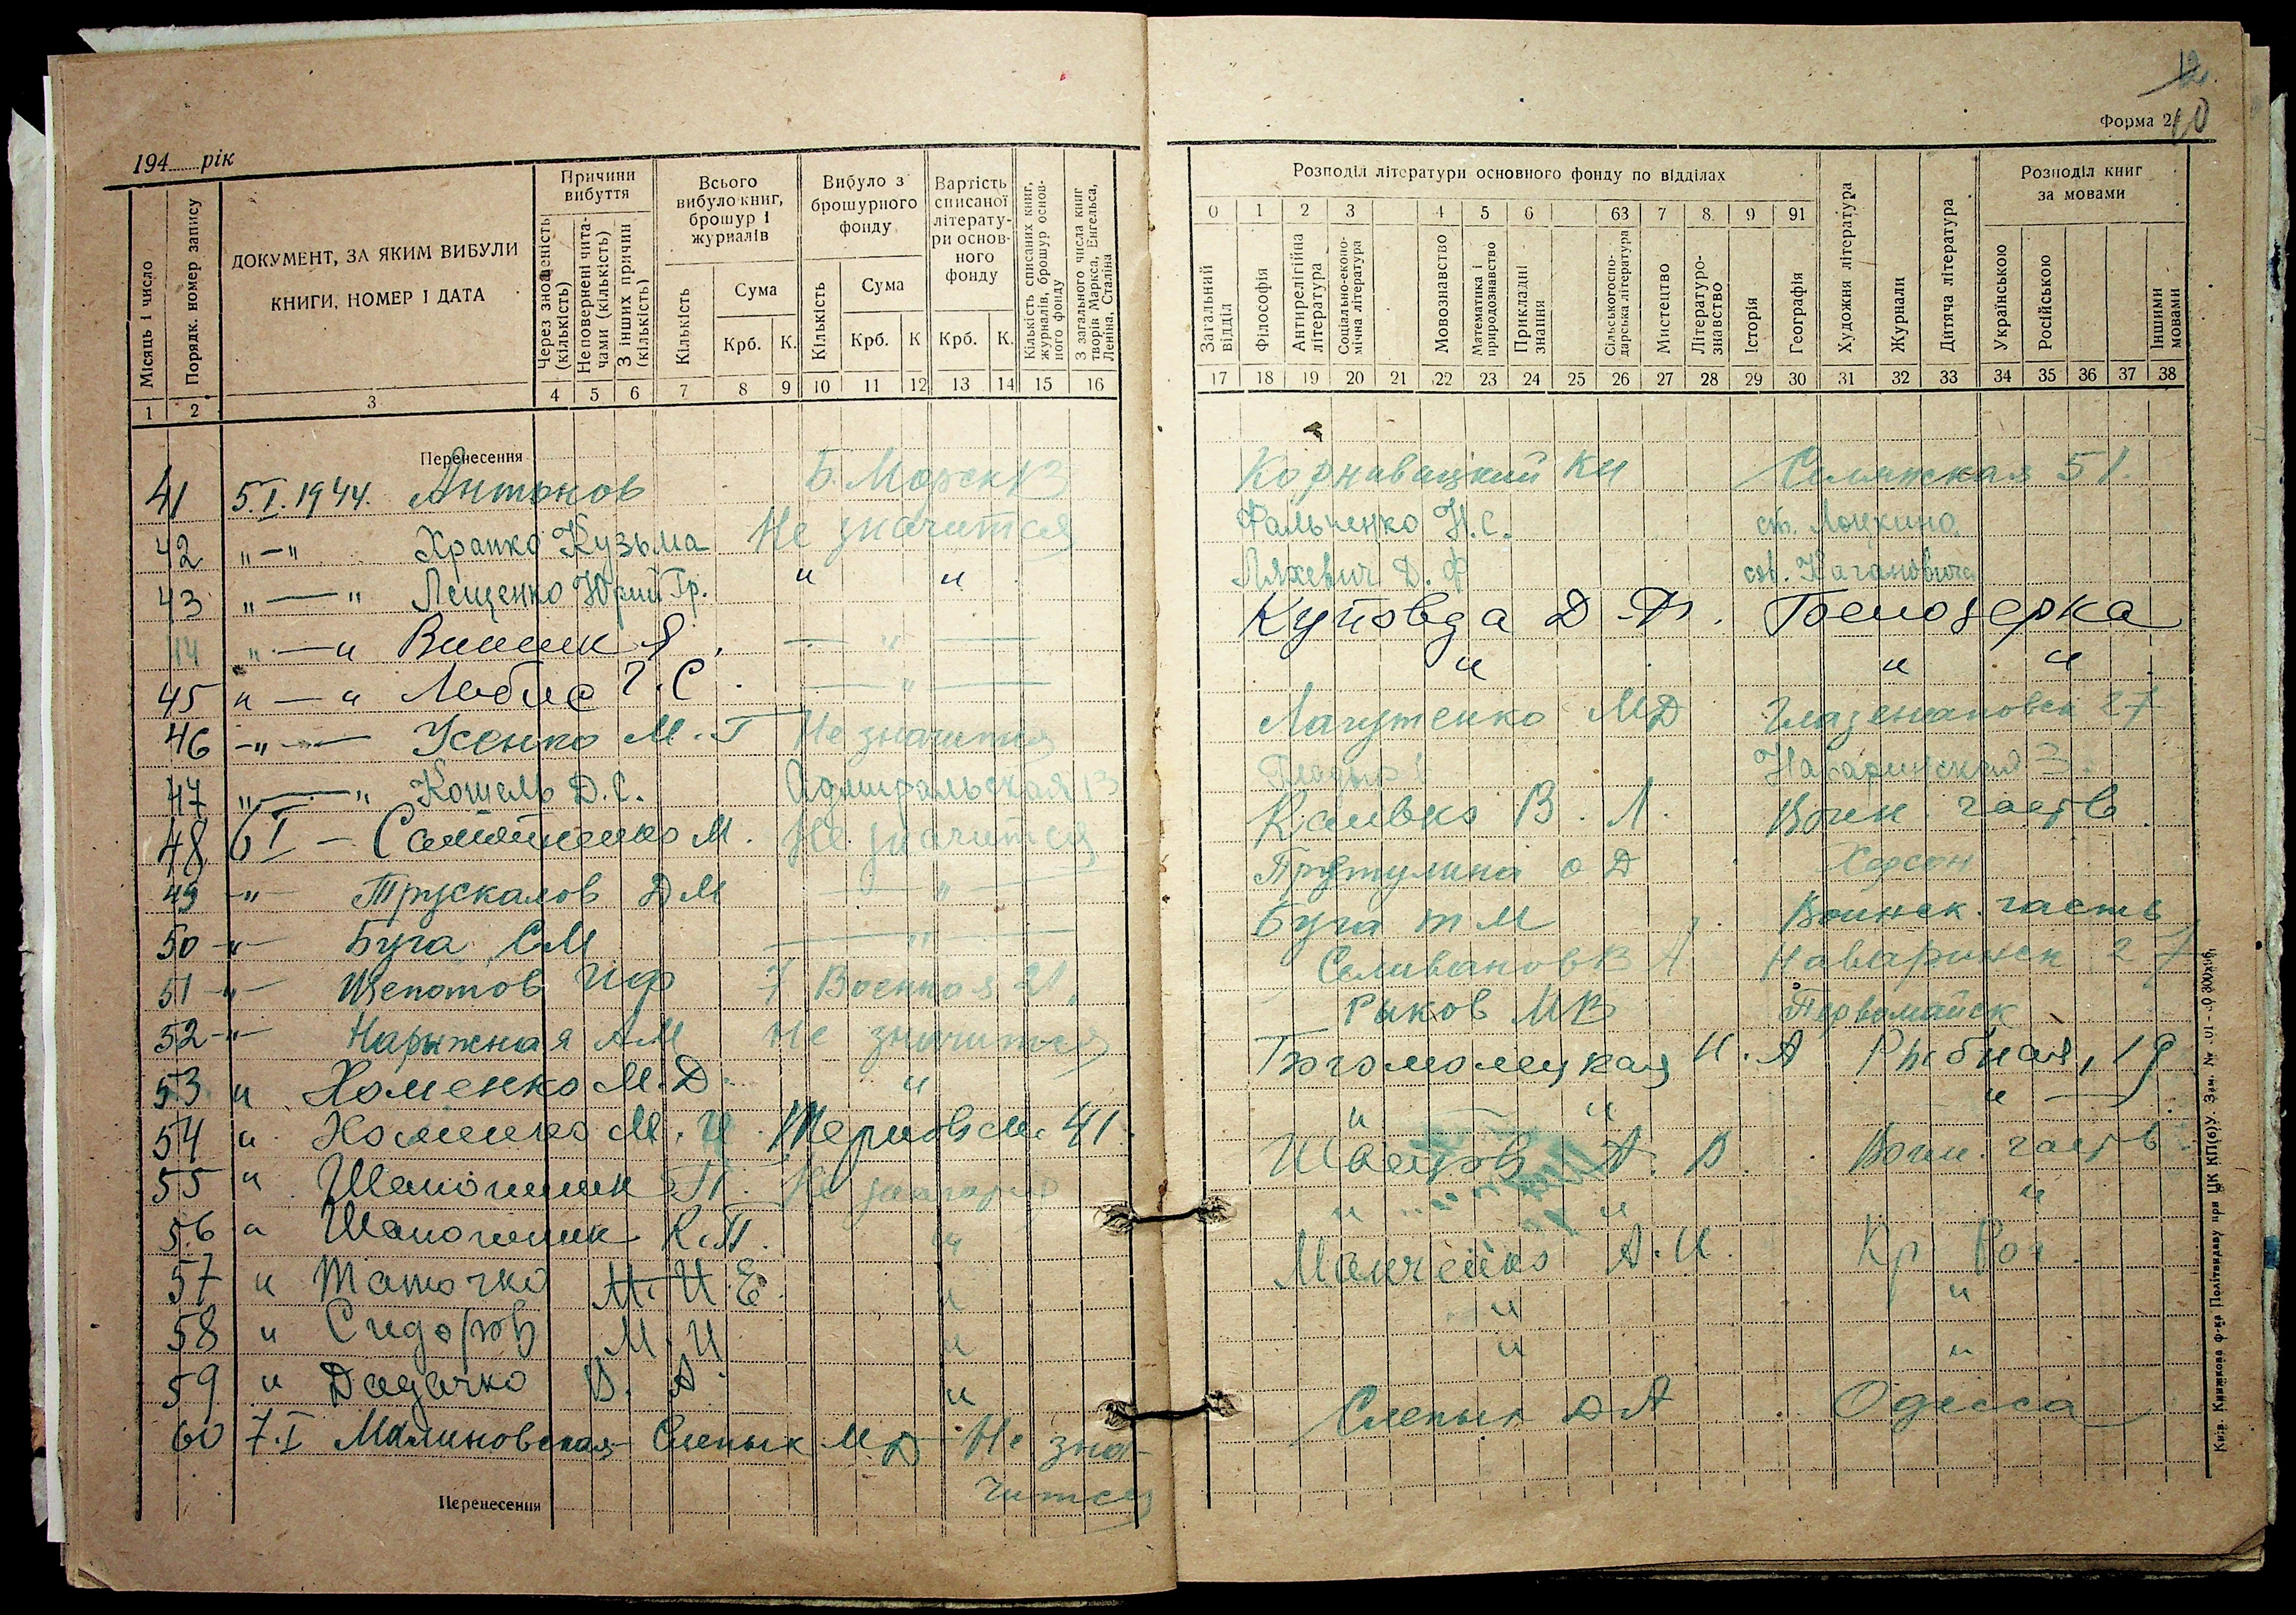 12
10
Форма 2
194 рік
Місяць і число
Порядк. номер запису
ДОКУМЕНТ, ЗА ЯКИМ ВИБУЛИ
КНИГИ, НОМЕР І ДАТА
Причини
вибуття
Через зношеність
(кількість)
Неповернені чита-
чами (кількість)
З інших причин
(кількість)
Всього
вибуло книг,
брошур і
журналів
Кількість
Сума
Крб. К.
Вибуло з
брошурного
фонду
Кількість
Сума
Крб. К
Вартість
списаної
літерату-
ри основ-
ного
фонду
Крб. К.
Кількість списаних книг,
журналів, брошур основ-
ного фонду
З загального числа книг
творів Маркса, Енгельса,
Леніна, Сталіна
1 2 3 4 5 6 7 8 9 10 11 12 13 14 15 16
Розподіл літератури основного фонду по відділах
0 1 2 3 4 5 6 63 7 8 9 91
Загальний
відділ
Філософія
Антирелігійна
література
Соціально-еконо-
мічна література
Мовознавство
Математика і
природознавство
Прикладні
знання
Сільськогоспо-
дарська література
Мистецтво
Літературо-
знавство
Історія
Географія
Художня література
Журнали
Дитяча література
Розподіл книг
за мовами
Українською
Російською
Іншими
мовами
17 18 19 20 21 22 23 24 25 26 27 28 29 30 31 32 33 34 35 36 37 38
Перенесення
41 5.I.1944. Антонов Б. Морск 13 51.
42 „—„ Храпко Кузьма Не значится Фальченко Н.С. ст. Лоцкино
43 „—„ Лещенко Юрий Гр. „ „ Ляхевич Д. Ф с/х. Кагановича
44 „—„ Винник Я. —„— Куповда Д. Белозерка
45 „—„ Г. С. —„— „ „ „
46 —„— Усенко М. Г Не значится Лагутенко МД 27
47 „—„ Кошель Д.С. Адмиральская 13 3.
48 6 I — М. Не значится В. Л. Воин часть
49 —„ Трускалов ДМ —„— О Д Херсон
50 —„— Буга СМ —„— Буга М Воинск. часть
51 —„— Щепотов ИФ 7 Военная 21. Селиванов В А Наваринск 27
52 —„— Нарыжная АМ Не значится Рыков МВ Первомайск
53 „ Хоменко М.Д. „ Богомолецкая Н. А Рыбная, 19
54 „ Хоменко М. И. 41. „ „ „
55 „ П. Не значится Швецов А. В. Воин. часть
56 „ К.П. „ „ „ „
57 „ Таточко И Е. „ А.И. Кр Рог.
58 „ Сидоров М. И „ „ „
59 „ Дадачко В. А. „ „ „
60 7.I Малиновская Слепых М.Д Не зна-
чится
Слепых ДА Одесса
Перенесення
Київ. Книжкова ф-ка Політвидаву при ЦК КП(б)У.